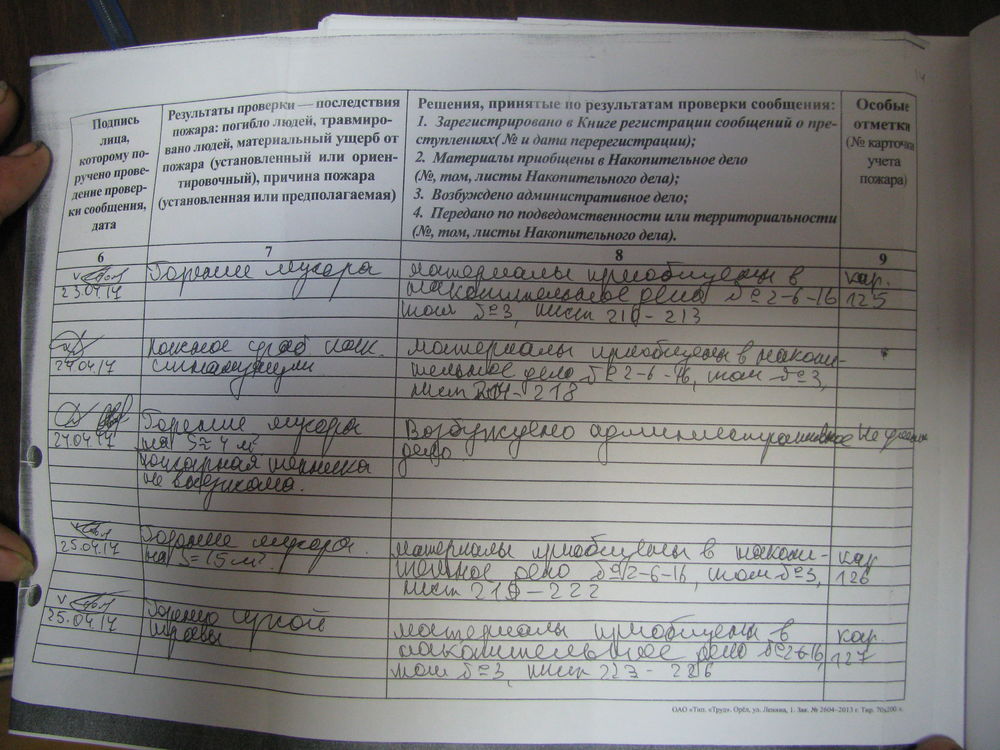 14
Подпись
лица,
которому по-
ручено прове-
дение провер-
ки сообщения,
дата
Результаты проверки — последствия
пожара: погибло людей, травмиро-
вано людей, материальный ущерб от
пожара (установленный или ориен-
тировочный), причина пожара
(установленная или предполагаемая)
Решения, принятые по результатам проверки сообщения:
1. Зарегистрировано в Книге регистрации сообщений о пре-
ступлениях( № и дата перерегистрации);
2. Материалы приобщены в Накопительное дело
(№, том, листы Накопительного дела);
3. Возбуждено административное дело;
4. Передано по подведомственности или территориальности
(№, том, листы Накопительного дела).
Особые
отметки
(№ карточки
учета
пожара)
6
7
8
9
23.04.14
Горение мусора
материалы приобщены в
накопительное дело №2-6-16
том №3, лист 210-213
кар.
125
24.04.14
ложное сраб. пож.
сигнализации
материалы приобщены в накопи-
тельное дело №2-6-16, том №3,
лист 214-218
24.04.14
Горение мусора
на S≈4 м²
пожарная техника
не выезжала.
Возбуждено административное
дело.
Не
25.04.14
Горение мусора.
на S=15м².
материалы приобщены в накопи-
тельное дело №2-6-16, том №3,
лист 219-222
кар
126
25.04.14
Горение сухой
травы
материалы приобщены в
накопительное дело №2-6-16,
том №3, лист 223-226
кар.
127
ОАО «Тип. «Труд». Орёл, ул. Ленина, 1. Зак. № 2604-2013 г. Тир. 70х200 г.